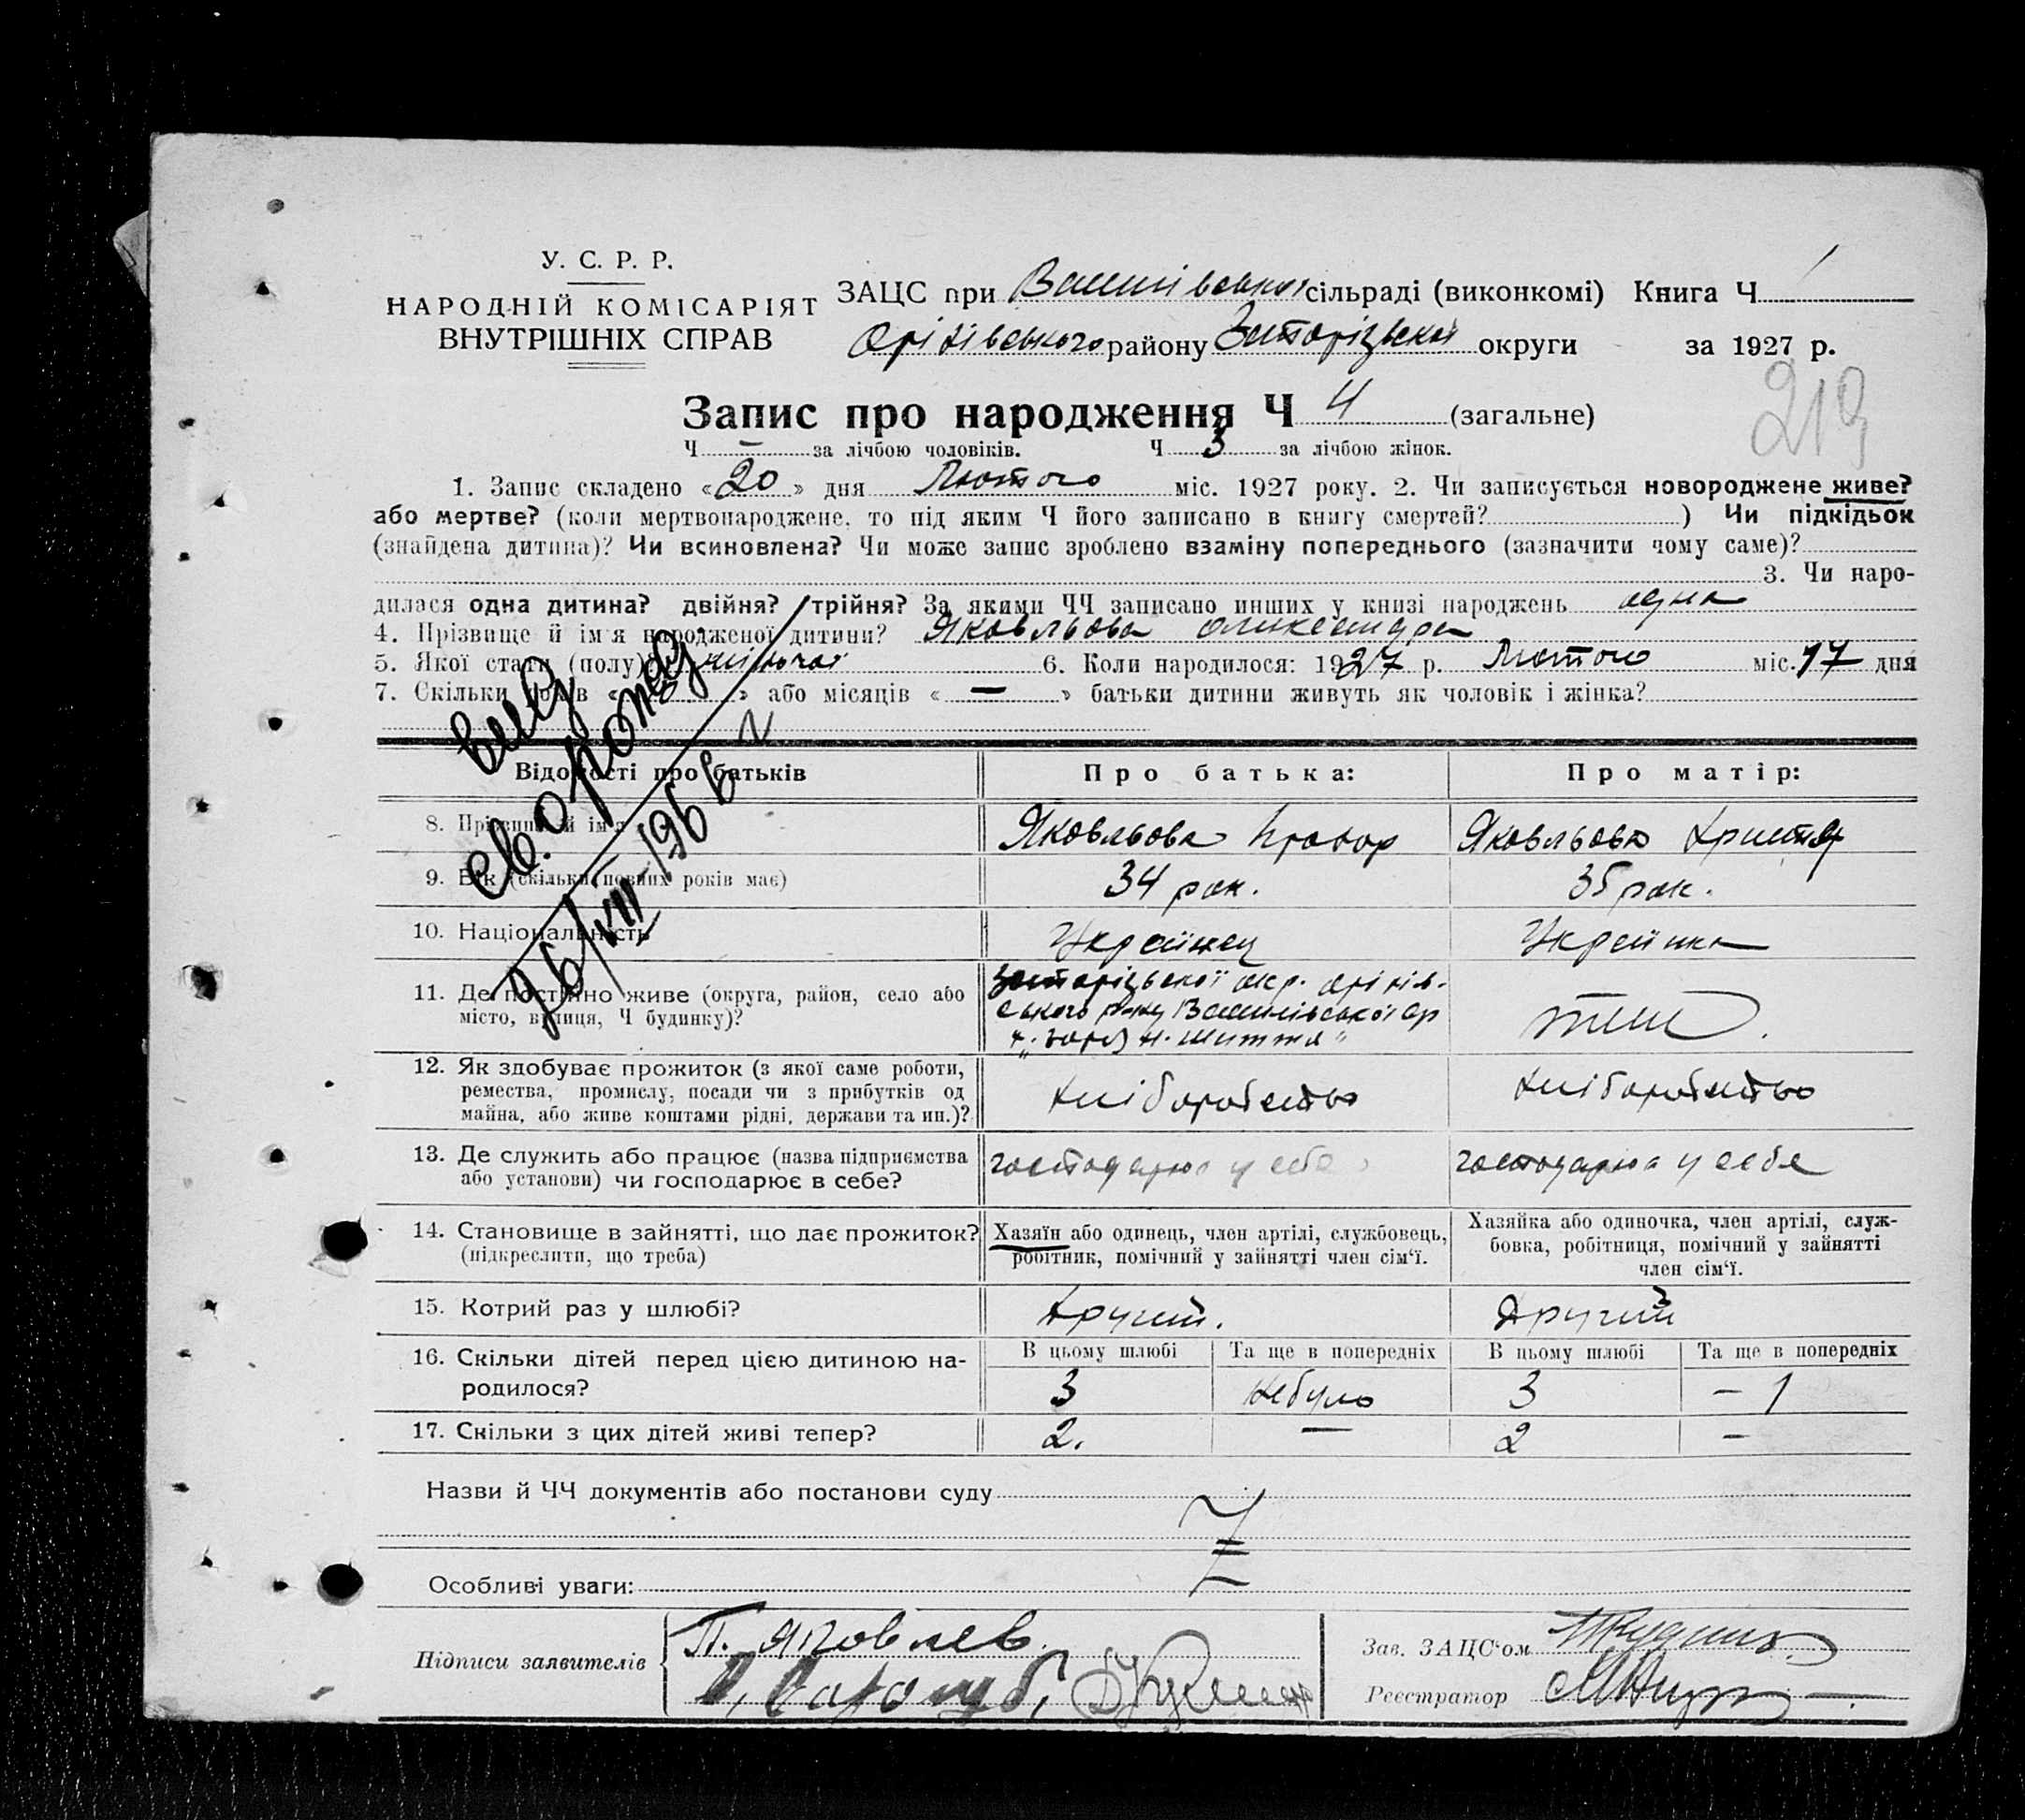 У. С. Р. Р.
НАРОДНІЙ КОМІСАРІЯТ
ВНУТРІШНІХ СПРАВ
ЗАЦС при сільраді (виконкомі) Книга Ч. 1
району округи за 1927 р.
219
Запис про народження Ч 4 (загальне)
Ч. — за лічбою чоловіків. Ч. 3 за лічбою жінок.
1. Запис складено «20» дня Лютого міс. 1927 року. 2. Чи записується новороджене живе?
або мертве? (коли мертвонароджене, то під яким Ч його записано в книгу смертей? ) Чи підкідьок
(знайдена дитина)? Чи всиновлена? Чи може запис зроблено взаміну попереднього (зазначити чому саме)?
3. Чи наро-
дилася одна дитина? двійня? трійня? За якими ЧЧ записано инших у книзі народжень одна
4. Прізвище й ім'я народженої дитини? Яковльова Олександра
5. Якої стати (полу)? жіночої 6. Коли народилося: 1927 р. Лютого міс. 17 дня
7. Скільки років « » або місяців « — » батьки дитини живуть як чоловік і жінка?
вид
св. о рожд
26/VII-196
Відомості про батьків Про батька: Про матір:
8. Прізвище й ім'я Яковльова Яковльова Христя
9. Вік (скільки повних років має) 34 рок. 35 рок.
10. Національність Українец Українка
11. Де постійно живе (округа, район, село або
місто, вулиця, Ч будинку)?
12. Як здобуває прожиток (з якої саме роботи,
ремества, промислу, посади чи з прибутків од
майна, або живе коштами рідні, держави та ин.)? Хліборобство Хліборобство
13. Де служить або працює (назва підприємства
або установи) чи господарює в себе? господарює у себе господарює у себе
14. Становище в зайнятті, що дає прожиток?
(підкреслити, що треба)
Хазяїн або одинець, член артілі, службовець,
робітник, помічний у зайнятті член сім'ї.
Хазяйка або одиночка, член артілі, служ-
бовка, робітниця, помічний у зайнятті
член сім'ї.
15. Котрий раз у шлюбі? другий. Другий
16. Скільки дітей перед цією дитиною на-
родилося?
В цьому шлюбі Та ще в попередніх В цьому шлюбі Та ще в попередніх
3 небуло 3 — 1
17. Скільки з цих дітей живі тепер? 2. — 2 —
Назви й ЧЧ документів або постанови суду
Особливі уваги:
Підписи заявителів П. Яковлев.
Зав. ЗАЦС'ом
Реєстратор